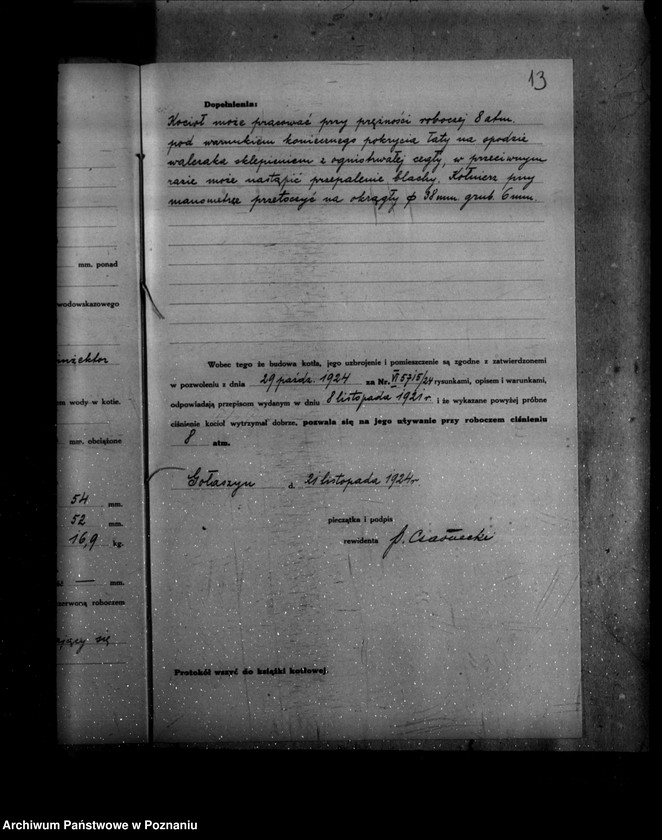 13
mm. ponad
wodowskazowego
m wody w kotle.
mm. obciążone
54 mm.
52 mm.
16,9 kg.
— mm.
czerwoną roboczem
ający się
Dopełnienia:
Kocioł może pracować przy prężności roboczej 8 atm.
pod warunkiem koniecznego pokrycia łaty na spodzie
walczaka sklepieniem z ogniotrwałej cegły, w przeciwnym
razie może nastąpić przepalenie blachy. Kołnierz przy
manometrze przetoczyć na okrągły ϕ 38 mm grub. 6 mm.
Wobec tego że budowa kotła, jego uzbrojenie i pomieszczenie są zgodne z zatwierdzonemi
w pozwoleniu z dnia 29 paźdz. 1924 za Nr. VI 5715/24 rysunkami, opisem i warunkami,
odpowiadają przepisom wydanym w dniu 8 listopada 1921 r. i że wykazane powyżej próbne
ciśnienie kocioł wytrzymał dobrze, pozwala się na jego używanie przy roboczem ciśnieniu
8 atm.
Gołaszyn d. 21 listopada 1924 r
pieczątka i podpis
rewidenta
Protokół wszyć do książki kotłowej.
Archiwum Państwowe w Poznaniu